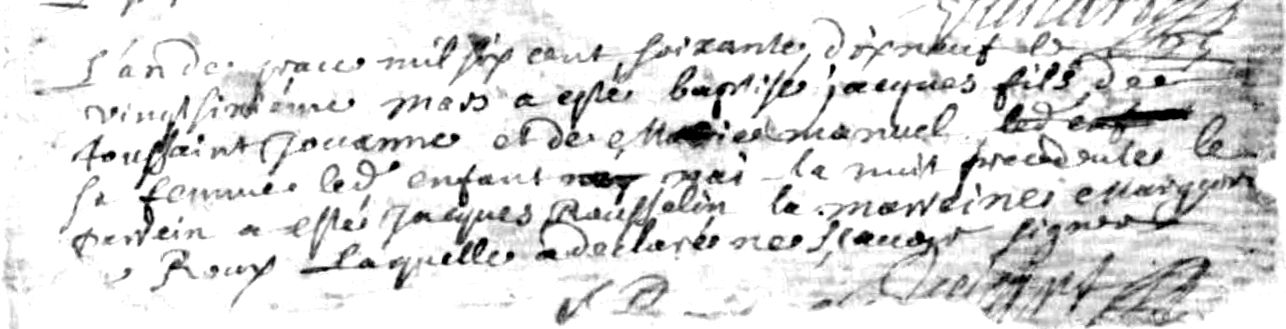 L'an de grace mil six cent soixante dixneuf le
vingtsixieme mars a esté baptisé jacques fils de
toussaint Jouanne et de Marie manuel
sa femme led enfant nai la nuit precedente le
parrein a esté Jacques Rousselin la marreine Margueri
e Roux laquelle a declaré ne sçauoir signer